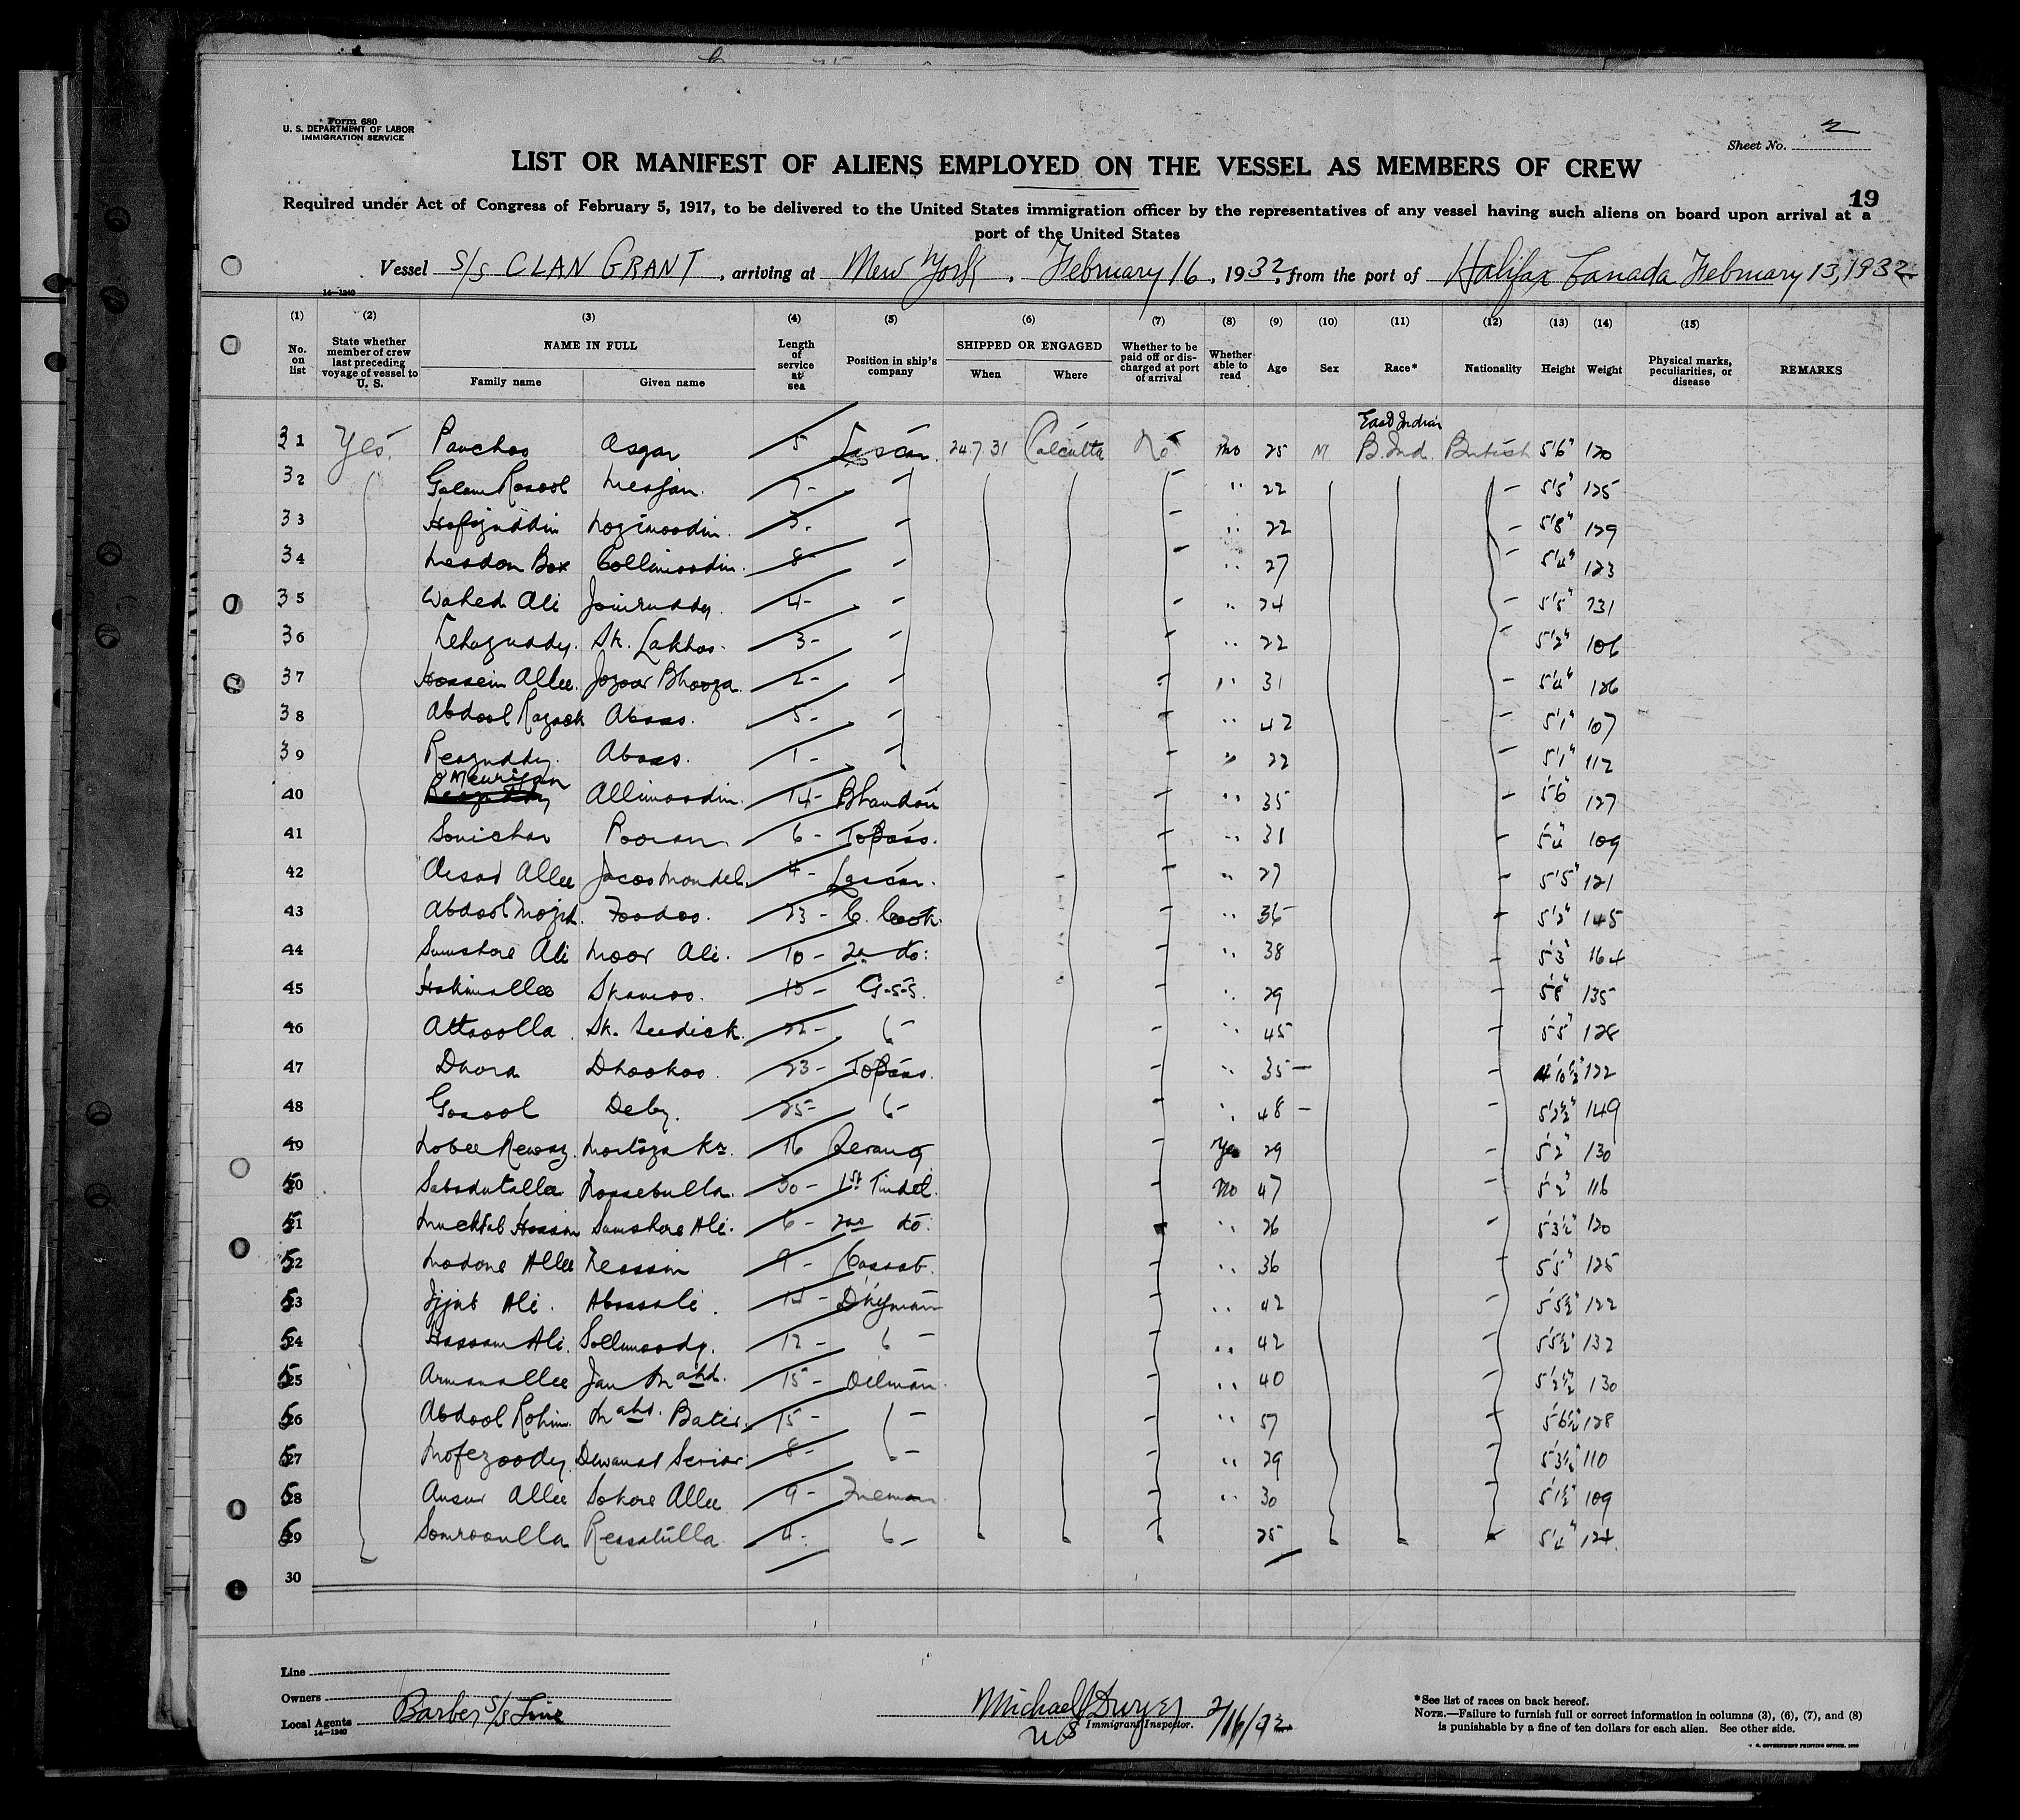 Form 680
U. S. DEPARTMENT OF LABOR
IMMIGRATION SERVICE
Sheet No. 2
LIST OR MANIFEST OF ALIENS EMPLOYED ON THE VESSEL AS MEMBERS OF CREW
19
Required under Act of Congress of February 5, 1917, to be delivered to the United States immigration officer by the representatives of any vessel having such aliens on board upon arrival at a
port of the United States
Vessel S/S CLAN GRANT, arriving at New York, February 16, 1932, from the port of Halifax Canada February 13, 1932
14—1240
(1) (2) (3) (4) (5) (6) (7) (8) (9) (10) (11) (12) (13) (14) (15)
No. on list | State whether member of crew last preceding voyage of vessel to U. S. | NAME IN FULL | Length of service at sea | Position in ship's company | SHIPPED OR ENGAGED | Whether to be paid off or discharged at port of arrival | Whether able to read | Age | Sex | Race* | Nationality | Height | Weight | Physical marks, peculiarities, or disease | REMARKS
Family name | Given name | When | Where
East Indian
31 Yes Panchoo Asgar 5 Lascar 24.7.31 Calcutta No No 25 M B.Ind. British 5'6" 120
32 Golam Rosool 7 - - - " 22 - 5'5" 125
33 Hofizuddin 3 - - - " 22 - 5'8" 129
34 Box Collimoodin 8 - - " 27 - 5'4" 123
35 Wahed Ali Joinruddy 4 - - - " 24 - 5'5" 131
36 Sk. Lakhoo 3 - - - " 22 - 5'2" 106
37 Hossein Allee Bhooza 2 - - - " 31 - 5'4" 126
38 Abdool Razack Abass 5 - - - " 42 - 5'1" 107
39 Reazuddy Abass 1 - - - " 22 - 5'1" 112
40 Allimoodin 14 - Bhandari - " 35 - 5'6" 127
41 Sonichar Pooran 6 - Topass - " 31 - 5'4" 109
42 Arsad Allee 4 - Lascar - " 27 - 5'5" 121
43 Abdool Mojid Foodoo 23 - C. Cook - " 36 - 5'2" 145
44 Sumshore Ali Noor Ali 10 - 2nd do: - " 38 - 5'3" 164
45 Hakimallee G.S.S. - " 29 - 5'8" 135
46 Attaoolla Sk. Seedick 22 - - " 45 - 5'5" 128
47 Dhora Dhookoo 23 - Topass - " 35 - 4'10½" 122
48 Deby 25 - - " 48 - 5'2½" 149
49 16 Serang - Yes 29 - 5'2" 130
50 30 - 1st Tindel - No 47 - 5'2" 116
51 Hossin Sumshore Ali 6 - 2nd do. " 26 - 5'3½" 120
52 Allee 9 - Cassab - " 36 - 5'5" 125
53 Ali Abassali Dkyman - " 42 - 5'5½" 122
54 Hassan Ali 12 - - " 42 - 5'5½" 132
55 Armanallee Jan Mahd. 15 - Oilman - " 40 - 5'2½" 130
56 Abdool Rohim Mahd. 15 - - - " 57 - 5'6½" 128
57 Mofezooddy 8 - - - " 29 - 5'3½" 110
58 Ansur Allee Sokore Allee 9 - Fireman - " 30 - 5'1½" 109
59 4 - - 25 5'4" 124
30
Line
Owners
Local Agents Barber S/S Line
14—1240
Michael J Dwyer 2/16/32
US Immigrant Inspector.
*See list of races on back hereof.
NOTE.—Failure to furnish full or correct information in columns (3), (6), (7), and (8)
is punishable by a fine of ten dollars for each alien. See other side.
U. S. GOVERNMENT PRINTING OFFICE